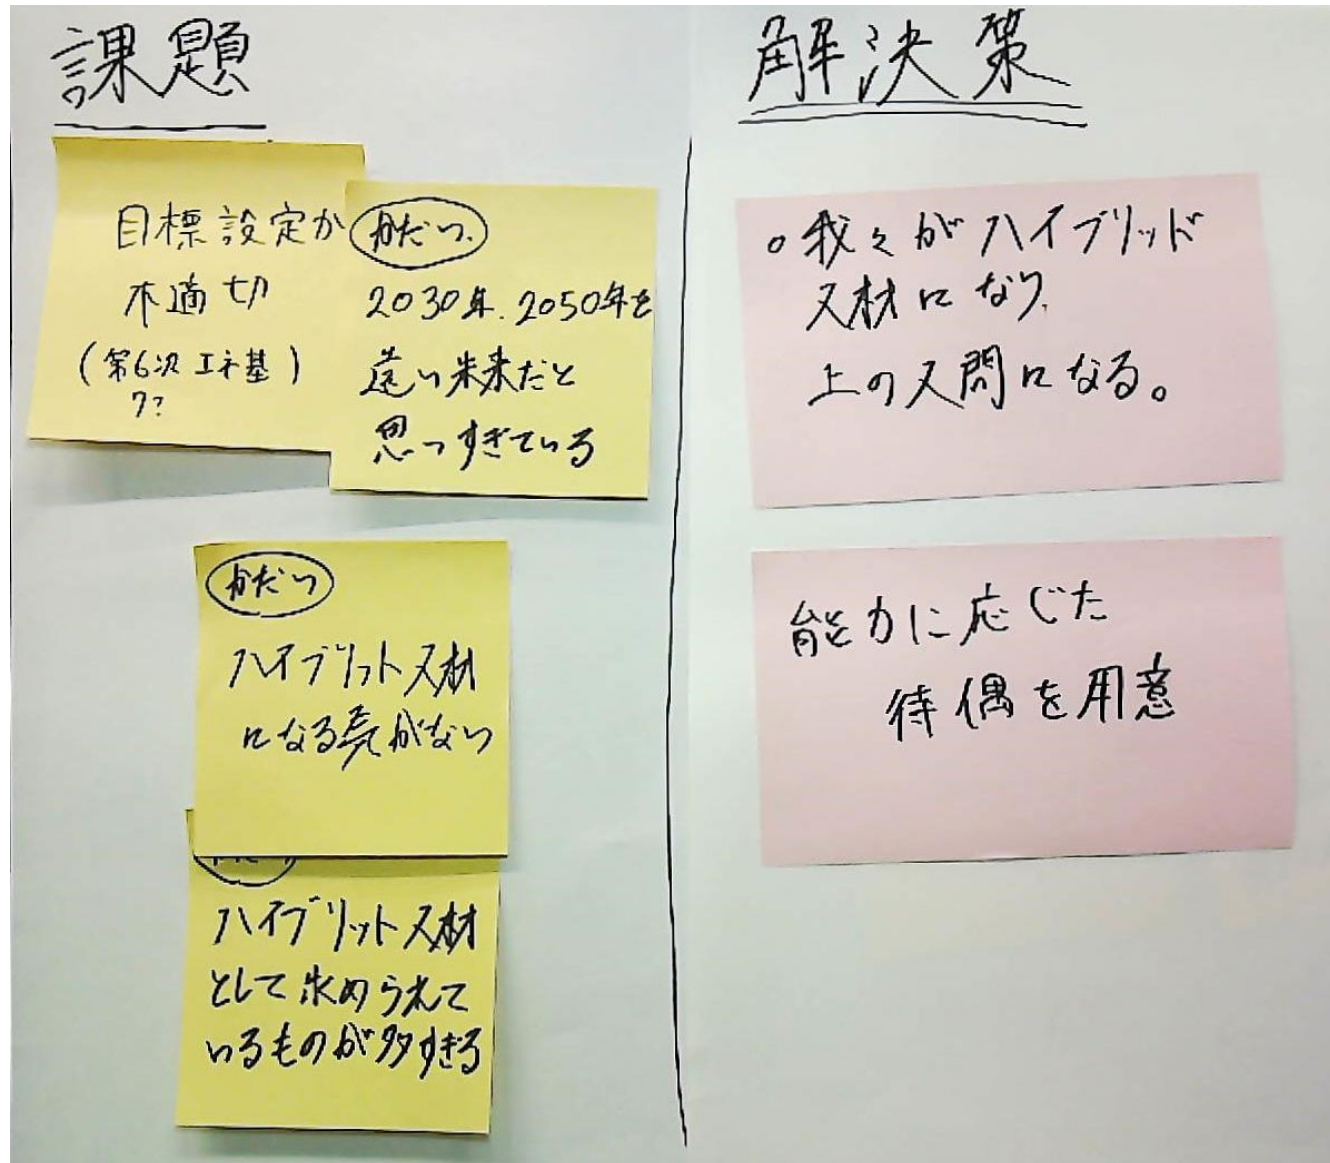 課題
目標設定が
不適切
(第6次エネ基)
?
かだい
2030年、2050年を
遠い未来だと
思っすぎている
かだい
ハイブリット人材
になる気がない
ハイブリット人材
として求められて
いるものが多すぎる
解決策
○我々がハイブリッド
人材になり、
上の人間になる。
能力に応じた
待偶を用意